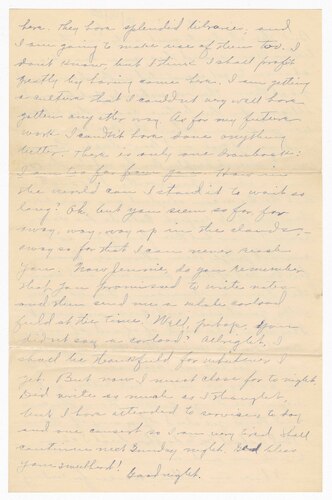 here. They have splendid libraries, and
I am going to make use of them too. I
don't know, but I think I shall profit
greatly by having come here. I am getting
a culture that I couldn't very well have
gotten any other way. As for my future
work I couldn't have done anything
better. There is only one drawback:
I am too far from you. How in
the world can I stand it to wait so
long? Oh, but you seem so far, far
away, way, way up in the clouds, –
away so far that I can never reach
you. Now Jennie, do you remember
that you promised to write often
and then send me a whole carload
full at the time? Well, perhaps, you
didn't say a carload? Allright, I
shall be thankful for whatever I
get. But now I must close for to night
Did write as much as I thought,
but I have attended to services to day
and one concert so I am very tired. Shall
continue next Sunday night. God bless
you sweetheart!
Good night.